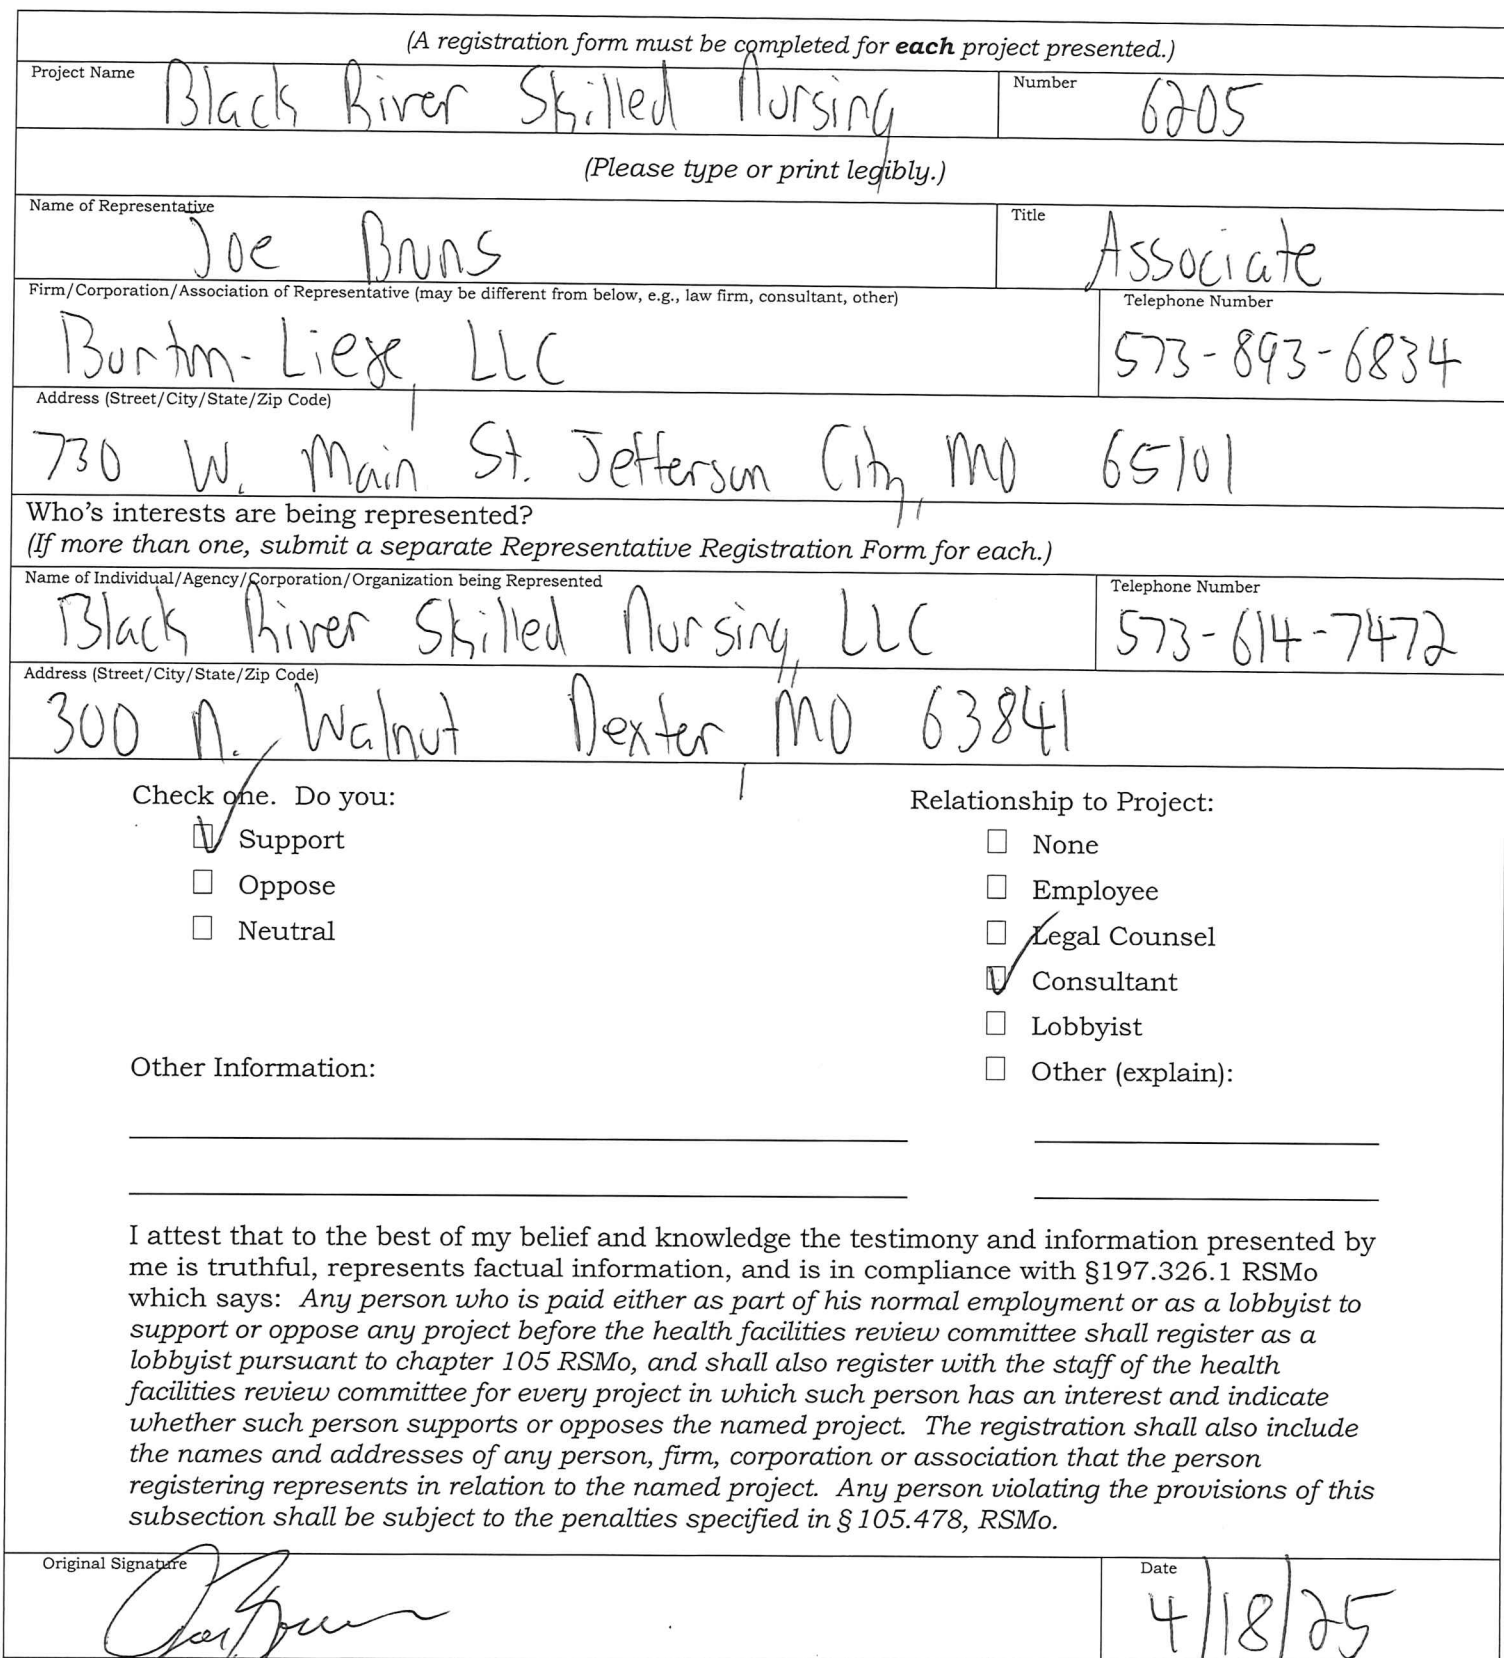 (A registration form must be completed for each project presented.)
Project Name Black River Skilled Nursing Number 6205
(Please type or print legibly.)
Name of Representative Joe Bruns Title Associate
Firm/Corporation/Association of Representative (may be different from below, e.g., law firm, consultant, other) Telephone Number
Burton-Liese, LLC 573-893-6834
Address (Street/City/State/Zip Code)
730 W. Main St. Jefferson City, MO 65101
Who's interests are being represented?
(If more than one, submit a separate Representative Registration Form for each.)
Name of Individual/Agency/Corporation/Organization being Represented Telephone Number
Black River Skilled Nursing, LLC 573-614-7472
Address (Street/City/State/Zip Code)
300 N. Walnut Dexter, MO 63841
Check one. Do you: Relationship to Project:
Support None
Oppose Employee
Neutral Legal Counsel
Consultant
Lobbyist
Other Information: Other (explain):
I attest that to the best of my belief and knowledge the testimony and information presented by
me is truthful, represents factual information, and is in compliance with §197.326.1 RSMo
which says: Any person who is paid either as part of his normal employment or as a lobbyist to
support or oppose any project before the health facilities review committee shall register as a
lobbyist pursuant to chapter 105 RSMo, and shall also register with the staff of the health
facilities review committee for every project in which such person has an interest and indicate
whether such person supports or opposes the named project. The registration shall also include
the names and addresses of any person, firm, corporation or association that the person
registering represents in relation to the named project. Any person violating the provisions of this
subsection shall be subject to the penalties specified in § 105.478, RSMo.
Original Signature Date
4/18/25